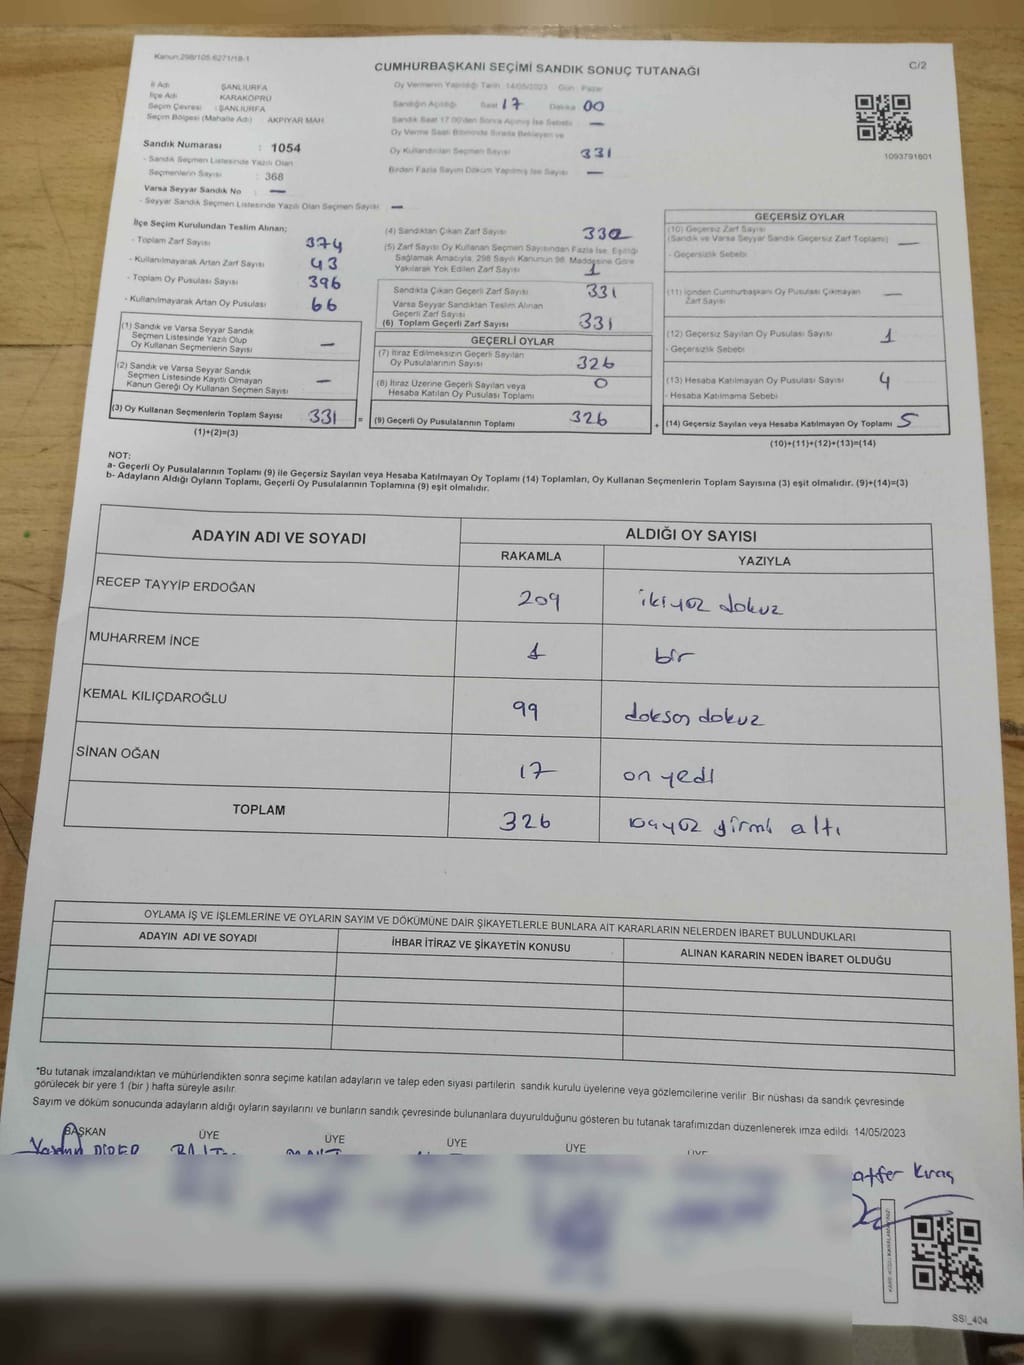 Kanun:298/105.6271/18-1
CUMHURBAŞKANI SEÇİMİ SANDIK SONUÇ TUTANAĞI
C/2
İl Adı : ŞANLIURFA
İlçe Adı : KARAKÖPRÜ
Seçim Çevresi : ŞANLIURFA
Seçim Bölgesi (Mahalle Adı) : AKPİYAR MAH
Oy Vermenin Yapıldığı Tarih : 14/05/2023 Gün : Pazar
Sandığın Açıldığı Saat 17 Dakika 00
Sandık Saat 17:00'den Sonra Açılmış İse Sebebi —
Oy Verme Saati Bitiminde Sırada Bekleyen ve
Oy Kullandırılan Seçmen Sayısı 331
Birden Fazla Sayım Döküm Yapılmış İse Sayısı —
1093791801
Sandık Numarası : 1054
- Sandık Seçmen Listesinde Yazılı Olan
Seçmenlerin Sayısı : 368
Varsa Seyyar Sandık No : —
- Seyyar Sandık Seçmen Listesinde Yazılı Olan Seçmen Sayısı —
İlçe Seçim Kurulundan Teslim Alınan;
- Toplam Zarf Sayısı 374
- Kullanılmayarak Artan Zarf Sayısı 43
- Toplam Oy Pusulası Sayısı 396
- Kullanılmayarak Artan Oy Pusulası 66
(1) Sandık ve Varsa Seyyar Sandık
Seçmen Listesinde Yazılı Olup
Oy Kullanan Seçmenlerin Sayısı —
(2) Sandık ve Varsa Seyyar Sandık
Seçmen Listesinde Kayıtlı Olmayan
Kanun Gereği Oy Kullanan Seçmen Sayısı —
(3) Oy Kullanan Seçmenlerin Toplam Sayısı 331 =
(1)+(2)=(3)
(4) Sandıktan Çıkan Zarf Sayısı 332
(5) Zarf Sayısı Oy Kullanan Seçmen Sayısından Fazla İse, Eşitliği
Sağlamak Amacıyla, 298 Sayılı Kanunun 98. Maddesine Göre
Yakılarak Yok Edilen Zarf Sayısı 1
Sandıkta Çıkan Geçerli Zarf Sayısı 331
Varsa Seyyar Sandıktan Teslim Alınan
Geçerli Zarf Sayısı
(6) Toplam Geçerli Zarf Sayısı 331
GEÇERLİ OYLAR
(7) İtiraz Edilmeksizin Geçerli Sayılan
Oy Pusulalarının Sayısı 326
(8) İtiraz Üzerine Geçerli Sayılan veya
Hesaba Katılan Oy Pusulası Toplamı 0
(9) Geçerli Oy Pusulalarının Toplamı 326 +
GEÇERSİZ OYLAR
(10) Geçersiz Zarf Sayısı
(Sandık ve Varsa Seyyar Sandık Geçersiz Zarf Toplamı) —
- Geçersizlik Sebebi
(11) İçinden Cumhurbaşkanı Oy Pusulası Çıkmayan
Zarf Sayısı —
(12) Geçersiz Sayılan Oy Pusulası Sayısı 1
- Geçersizlik Sebebi
(13) Hesaba Katılmayan Oy Pusulası Sayısı 4
- Hesaba Katılmama Sebebi
(14) Geçersiz Sayılan veya Hesaba Katılmayan Oy Toplamı 5
(10)+(11)+(12)+(13)=(14)
NOT:
a- Geçerli Oy Pusulalarının Toplamı (9) ile Geçersiz Sayılan veya Hesaba Katılmayan Oy Toplamı (14) Toplamları, Oy Kullanan Seçmenlerin Toplam Sayısına (3) eşit olmalıdır. (9)+(14)=(3)
b- Adayların Aldığı Oyların Toplamı, Geçerli Oy Pusulalarının Toplamına (9) eşit olmalıdır.
ADAYIN ADI VE SOYADI
ALDIĞI OY SAYISI
RAKAMLA YAZIYLA
RECEP TAYYİP ERDOĞAN 209 ikiyüz dokuz
MUHARREM İNCE 1 bir
KEMAL KILIÇDAROĞLU 99 doksan dokuz
SİNAN OĞAN 17 on yedi
TOPLAM 326 üçyüz yirmi altı
OYLAMA İŞ VE İŞLEMLERİNE VE OYLARIN SAYIM VE DÖKÜMÜNE DAİR ŞİKAYETLERLE BUNLARA AİT KARARLARIN NELERDEN İBARET BULUNDUKLARI
ADAYIN ADI VE SOYADI İHBAR İTİRAZ VE ŞİKAYETİN KONUSU ALINAN KARARIN NEDEN İBARET OLDUĞU
*Bu tutanak imzalandıktan ve mühürlendikten sonra seçime katılan adayların ve talep eden siyasi partilerin sandık kurulu üyelerine veya gözlemcilerine verilir. Bir nüshası da sandık çevresinde
görülecek bir yere 1 (bir ) hafta süreyle asılır.
Sayım ve döküm sonucunda adayların aldığı oyların sayılarını ve bunların sandık çevresinde bulunanlara duyurulduğunu gösteren bu tutanak tarafımızdan düzenlenerek imza edildi. 14/05/2023
BAŞKAN ÜYE ÜYE ÜYE ÜYE
SSI_404